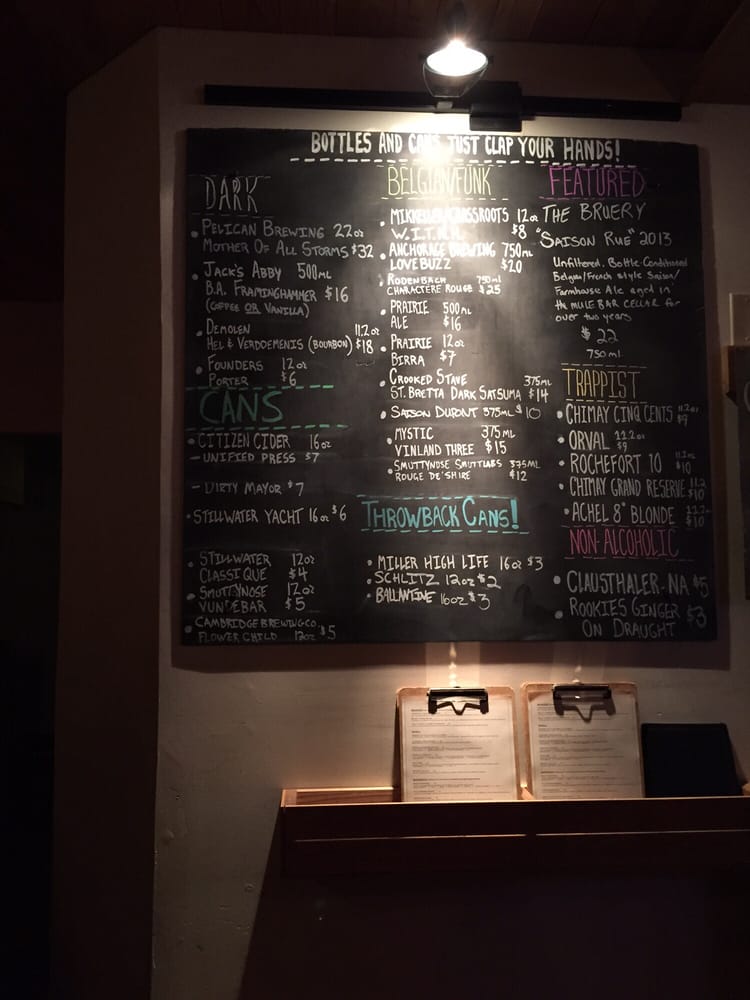 BOTTLES AND CANS JUST CLAP YOUR HANDS!
DARK
PELICAN BREWING 22oz
MOTHER OF ALL STORMS $32
JACK'S ABBY 500ML
B.A. FRAMINGHAMMER $16
(COFFEE OR VANILLA)
DEMOLEN 11.2oz
HEL & VERDOEMENIS (BOURBON) $18
FOUNDERS 12oz
PORTER $6
CANS
CITIZEN CIDER 16oz
- UNIFIED PRESS $7
- DIRTY MAYOR $7
STILLWATER YACHT 16oz $6
STILLWATER 12oz
CLASSIQUE $4
SMUTTYNOSE 12oz
VUNDEBAR $5
CAMBRIDGE BREWING CO.
FLOWER CHILD 12oz $5
BELGIAN/FUNK
MIKKELLER/GRASSROOTS 12oz
W.I.T.K.H. $8
ANCHORAGE BREWING 750ML
LOVEBUZZ $20
RODENBACH 750ml
CHARACTERE ROUGE $25
PRAIRIE 500ML
ALE $16
PRAIRIE 12oz
BIRRA $7
CROOKED STAVE 375ML
ST. BRETTA DARK SATSUMA $14
SAISON DUPONT 375ML $10
MYSTIC 375ML
VINLAND THREE $15
SMUTTYNOSE SMUTTLABS 375ML
ROUGE DE'SHIRE $12
THROWBACK CANS!
MILLER HIGH LIFE 16oz $3
SCHLITZ 12oz $2
BALLANTINE 16oz $3
FEATURED
THE BRUERY
"SAISON RUE" 2013
Unfiltered, Bottle-Conditioned
Belgian/French style Saison/
Farmhouse Ale aged in
the MULE BAR CELLAR for
over two years
$22
750ml
TRAPPIST
CHIMAY CINQ CENTS 11.2oz $9
ORVAL 11.2oz $9
ROCHEFORT 10 11.2oz $10
CHIMAY GRAND RESERVE 11.2 $10
ACHEL 8° BLONDE 11.2oz $10
NON-ALCOHOLIC
CLAUSTHALER-NA $5
ROOKIES GINGER $3
ON DRAUGHT